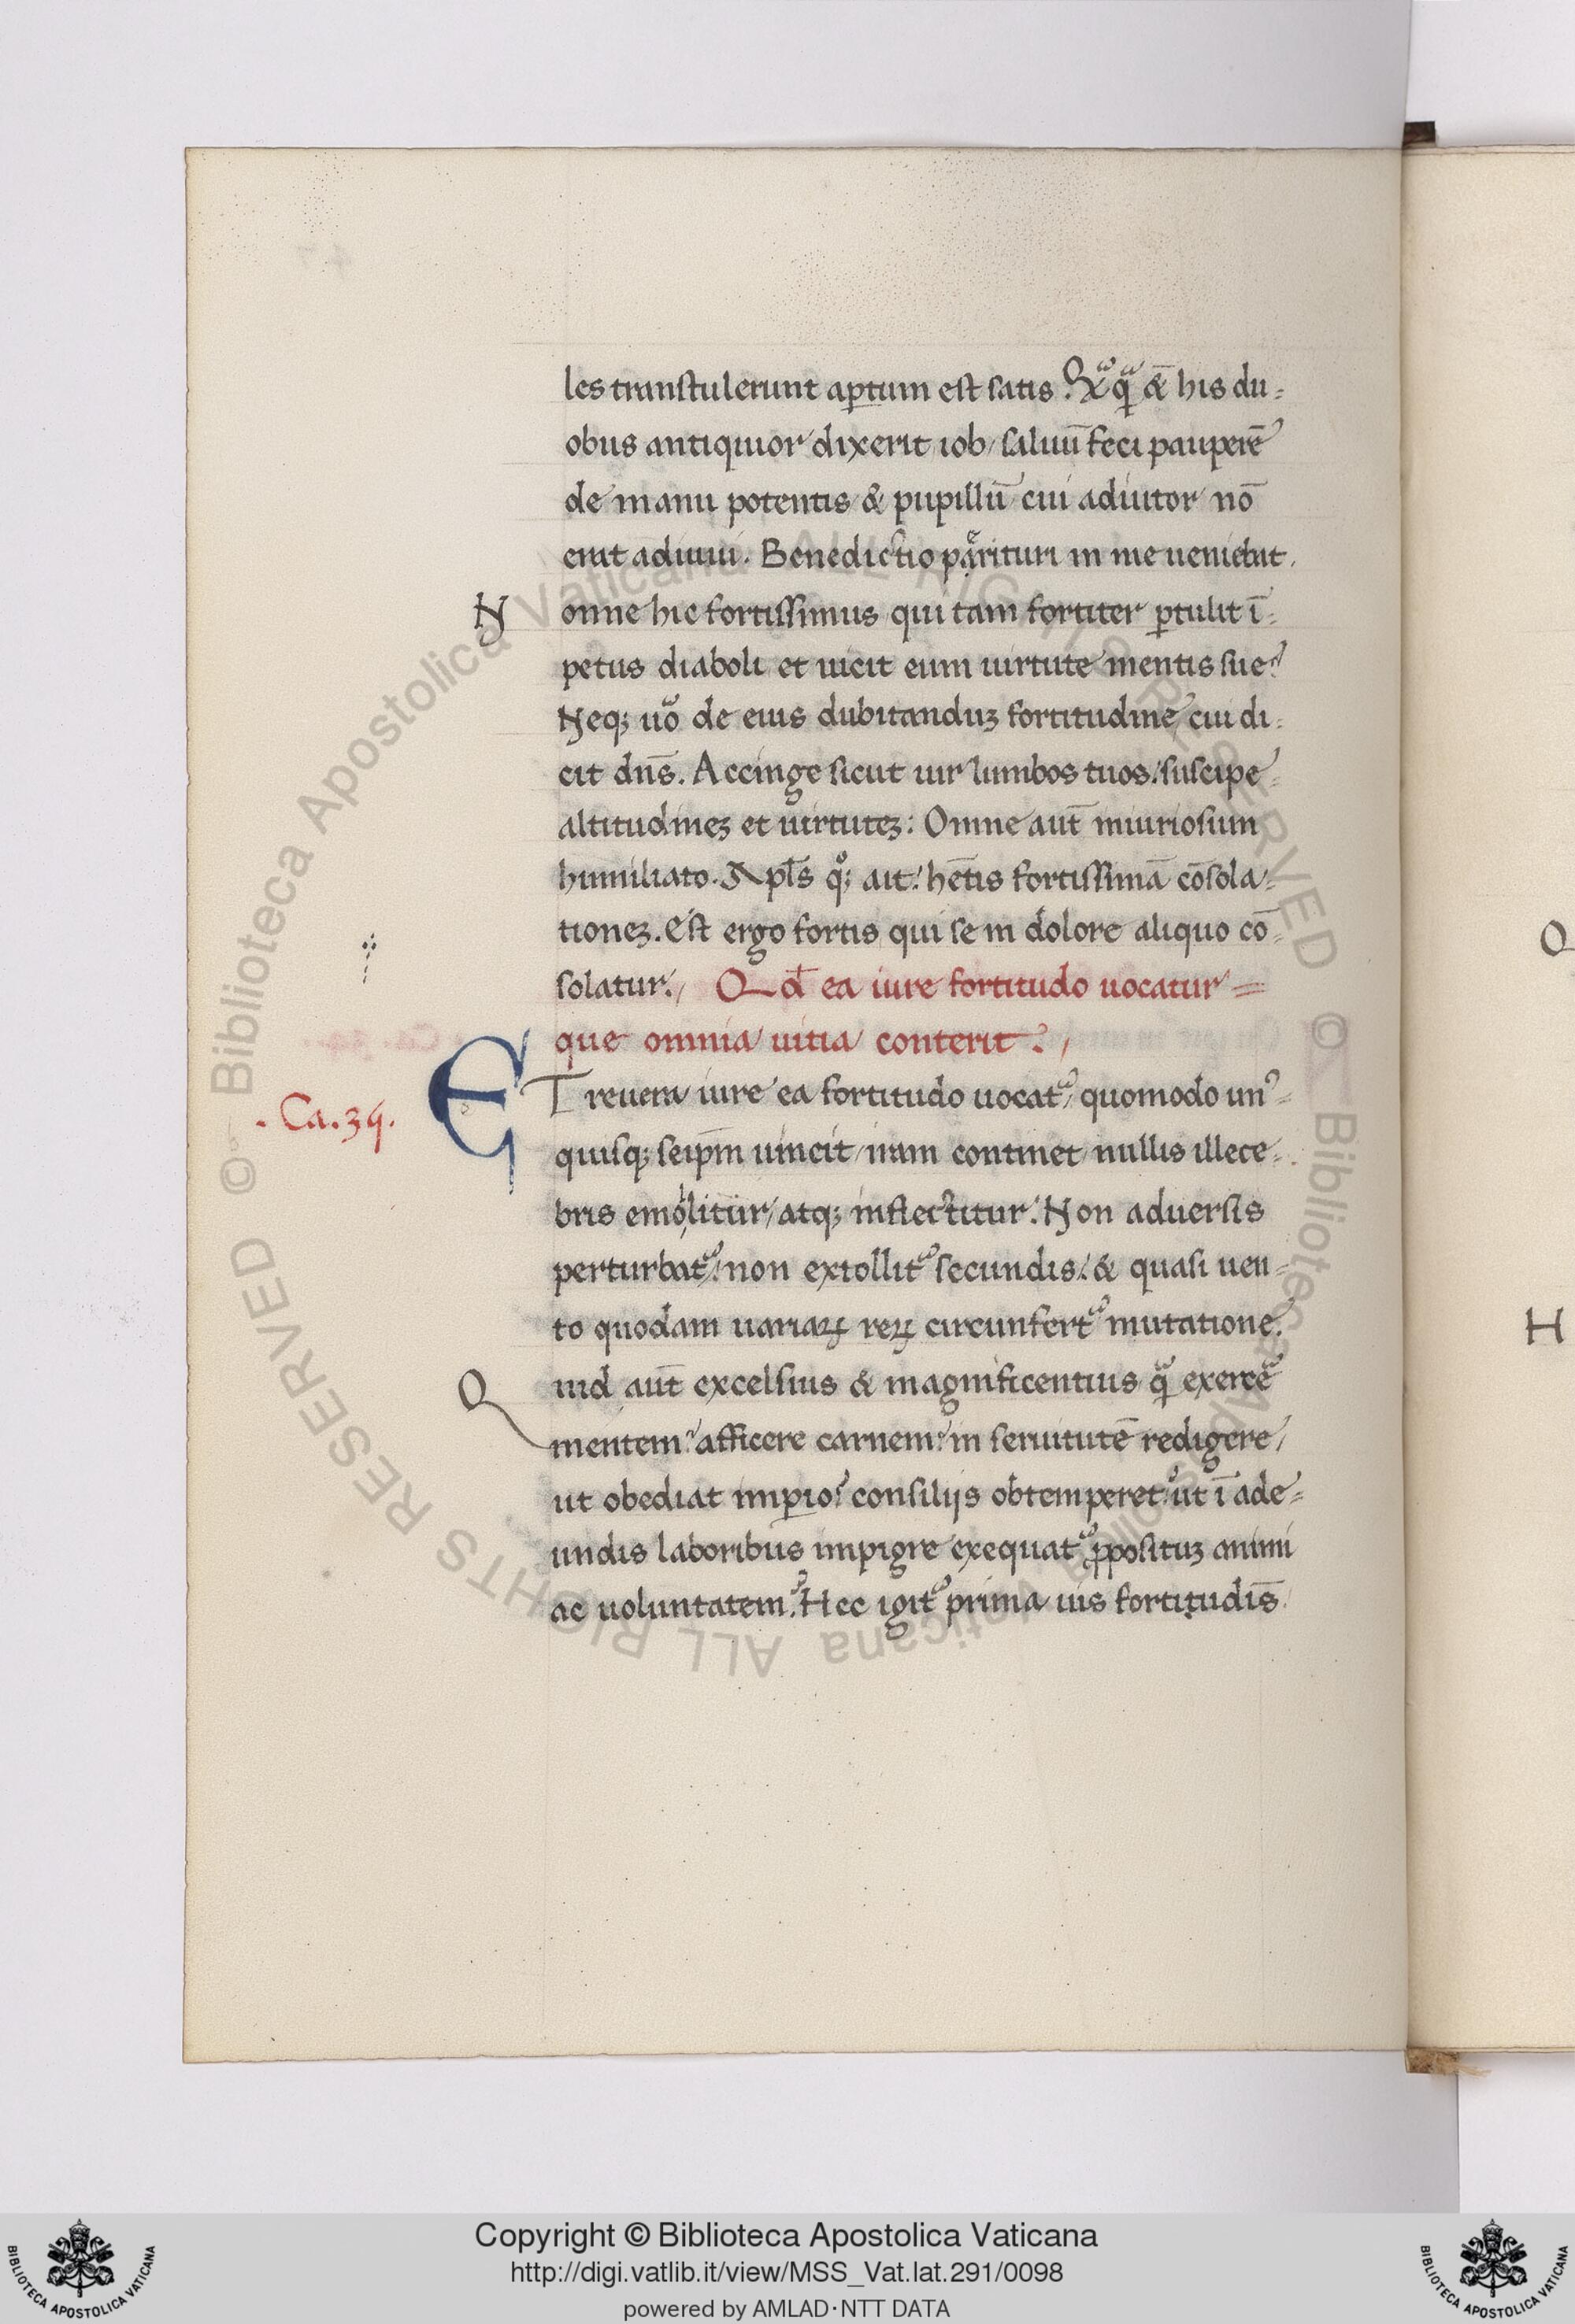 les transtulerunt aptum est satis. Qͣqͣ & his du=
obus antiquior dixerit iob/ saluū feci pauperē
de manu potentis & pupillū cui adiutor nō
erat adiuui. Benedictio perituri in me ueniebat.
Nonne hic fortissimus qui tam fortiter ꝑtulit ī=
petus diaboli et uicit eum uirtute mentis sue?
Neq; uo de eius dubitanduꝫ fortitudine cui di=
cit dn̄s. Accinge sicut uir lumbos tuos: suscipe
altitudineꝫ et uirtuteꝫ: Omne aut̄ iniuriosum
humiliato. Apl̄s qͦ; ait: hētis fortissimā cōsola=
tioneꝫ. Est ergo fortis qui se in dolore aliquo cō=
solatur. Qd̄ ea iure fortitudo uocatur=
que omnia uitia conterit.
.Ca.39.
ET reuera iure ea fortitudo uocat᷑ quomodo unꝰ=
quisq; seip̄m uincit/ iram continet nullis illece=
bris emollitur/ atq; inflectitur. Non aduersis
perturbat᷑: non extollit᷑ secundis: & quasi uen=
to quodam uariaꝝ reꝝ circunfert᷑ mutatione.
Quid aut̄ excelsius & magnificentius qͣ exercē
mentem: afficere carnem: in seruitutē redigere/
ut obediat imꝑio: consilijs obtemperet: ut ī ade=
undis laboribus impigre exequat᷑ ꝓposituꝫ animi
ac uoluntatem. Hec igit᷑ prima uis fortitudis̄
Copyright © Biblioteca Apostolica Vaticana
http://digi.vatlib.it/view/MSS_Vat.lat.291/0098
powered by AMLAD·NTT DATA
BIBLIOTECA APOSTOLICA VATICANA
BIBLIOTECA APOSTOLICA VATICANA
© Biblioteca Apostolica Vaticana ALL RIGHTS RESERVED
© Biblioteca Apostolica Vaticana ALL RIGHTS RESERVED
Q
H